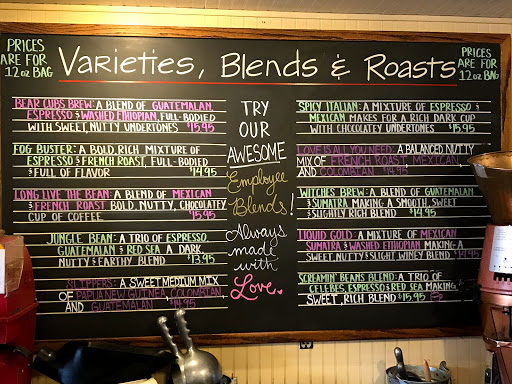 PRICES
ARE FOR
12oz BAG
Varieties, Blends & Roasts
PRICES
ARE FOR
12oz BAG
BEAR CUBS BREW: A BLEND OF GUATEMALAN,
ESPRESSO & WASHED ETHIOPIAN, FULL-BODIED
WITH SWEET, NUTTY UNDERTONES $15.95
FOG BUSTER: A BOLD, RICH MIXTURE OF
ESPRESSO & FRENCH ROAST, FULL-BODIED
& FULL OF FLAVOR $14.95
LONG LIVE THE BEAN: A BLEND OF MEXICAN
& FRENCH ROAST BOLD, NUTTY, CHOCOLATEY
CUP OF COFFEE. $15.95
JUNGLE BEAN: A TRIO OF ESPRESSO,
GUATEMALAN & RED SEA A DARK,
NUTTY & EARTHY BLEND $13.95
SLIPPERS: A SWEET MEDIUM MIX
OF PAPUA NEW GUINEA, COLOMBIAN
AND GUATEMALAN $14.95
TRY
OUR
AWESOME
Employee
Blends!
Always
made
with
Love
SPICY ITALIAN: A MIXTURE OF ESPRESSO &
MEXICAN MAKES FOR A RICH DARK CUP
WITH CHOCOLATEY UNDERTONES $15.95
LOVE IS ALL YOU NEED: A BALANCED NUTTY
MIX OF FRENCH ROAST, MEXICAN,
AND COLOMBIAN $14.95
WITCHES BREW: A BLEND OF GUATEMALAN
& SUMATRA MAKING A SMOOTH, SWEET
& SLIGHTLY RICH BLEND $14.95
LIQUID GOLD: A MIXTURE OF MEXICAN
SUMATRA & WASHED ETHIOPIAN MAKING A
SWEET NUTTY & SLIGHT WINEY BLEND $14.95
SCREAMIN' BEANS BLEND: A TRIO OF
CELEBES, ESPRESSO & RED SEA MAKING
SWEET, RICH BLEND $15.95